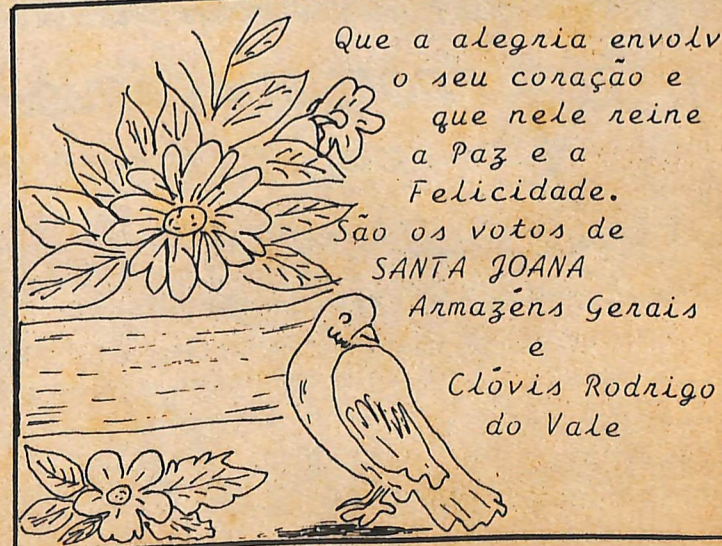 Que a alegria envolv
o seu coração e
que nele reine
a Paz e a
Felicidade.
São os votos de
SANTA JOANA
Armazéns Gerais
e
Clóvis Rodrigo
do Vale